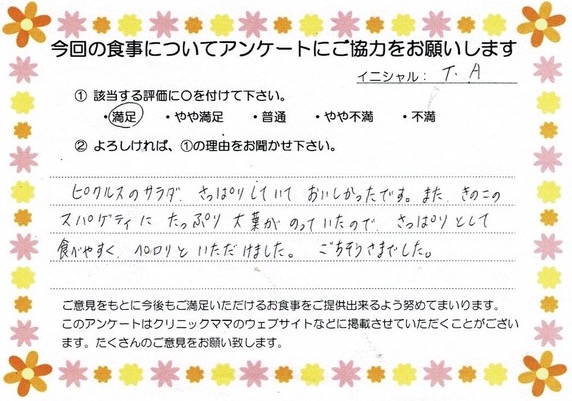 今回の食事についてアンケートにご協力をお願いします
イニシャル： T. A
① 該当する評価に〇を付けて下さい。
・満足 ・やや満足 ・普通 ・やや不満 ・不満
② よろしければ、①の理由をお聞かせ下さい。
ピクルスのサラダ、さっぱりしていて おいしかったです。また、きのこの
スパゲティに たっぷり 大葉が のっていたので、さっぱりとして
食べやすく、ペロリと いただけました。 ごちそうさまでした。
ご意見をもとに今後もご満足いただけるお食事をご提供出来るよう努めてまいります。
このアンケートはクリニックママのウェブサイトなどに掲載させていただくことがござい
ます。たくさんのご意見をお願い致します。